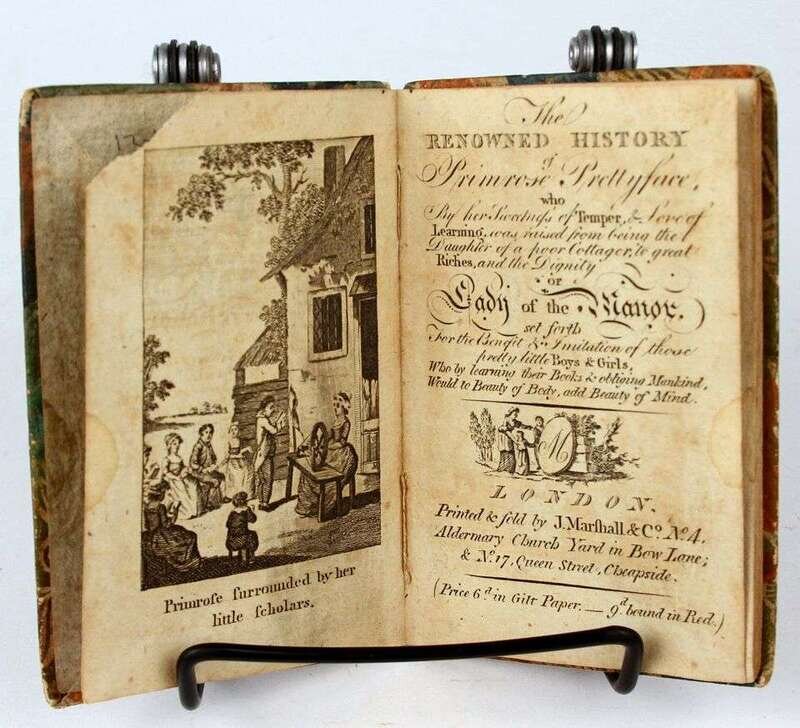 Primroſe ſurrounded by her
little ſcholars.
The
RENOWNED HISTORY
of
Primrose Prettyface,
who
By her Sweetneſs of Temper, & Love of
Learning, was raised from being the
Daughter of a poor Cottager, to great
Riches, and the Dignity
of
Lady of the Manor.
set forth
For the Benefit & Imitation of those
pretty little Boys & Girls,
Who by learning their Books & obliging Mankind,
Would to Beauty of Body, add Beauty of Mind.
M
LONDON.
Printed & ſold by J. Marſhall & Co. No. 4.
Aldermary Church Yard in Bow Lane;
& No. 17, Queen Street, Cheapside.
(Price 6d in Gilt Paper. — 9d bound in Red.)